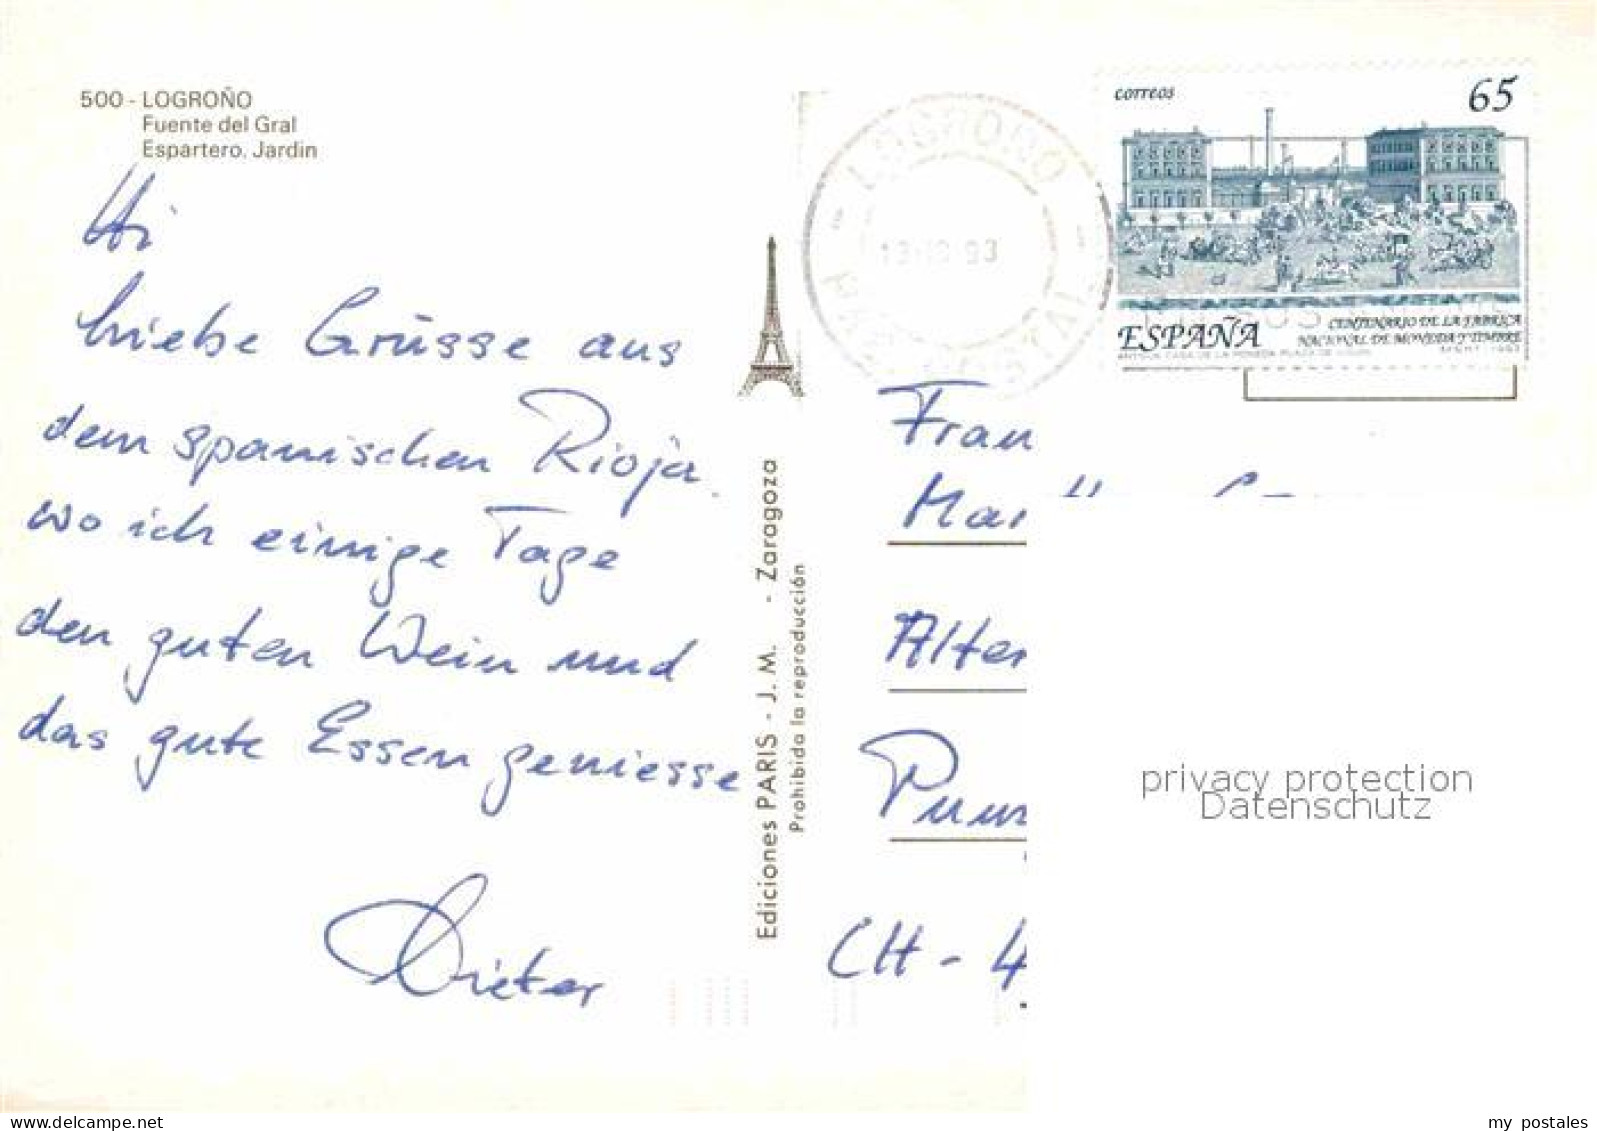 500 - LOGROÑO
Fuente del Gral
Espartero. Jardin
Hi
liebe Grüsse aus
dem spanischen Rioja
wo ich einige Tage
den guten Wein und
das gute Essen geniesse
Dieter
Ediciones PARIS - J. M. - Zaragoza
Prohibida la reproducción
LOGROÑO
correos
65
ESPAÑA
CENTENARIO DE LA FABRICA
NACIONAL DE MONEDA Y TIMBRE
Frau
Alter
CH - 4
privacy protection
Datenschutz
my postales